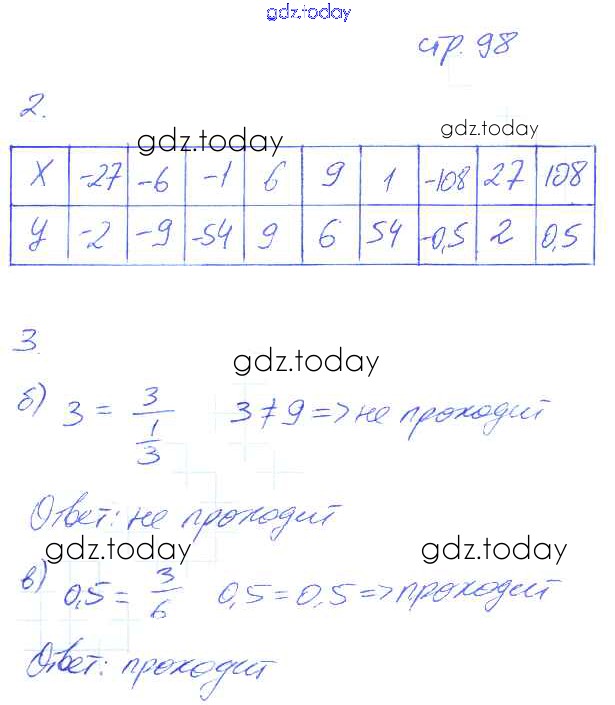 gdz.today
стр. 98
2.
gdz.today gdz.today
X -27 -6 -1 6 9 1 -108 27 108
У -2 -9 -54 9 6 54 -0,5 2 0,5
3.
gdz.today
б) 3 = 3/(1/3) 3 ≠ 9 => не проходит
Ответ: не проходит
gdz.today gdz.today
в) 0,5 = 3/6 0,5 = 0,5 => проходит
Ответ: проходит